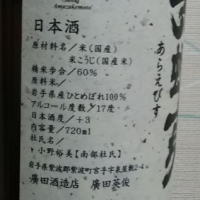 日本酒
原材料名／米(国産)
米こうじ(国産米)
精米歩合／60%
原料米／
岩手県産ひとめぼれ100%
アルコール度数／17度
日本酒度／+3
内容量／720ml
杜氏名／
小野裕美【南部杜氏】
岩手県紫波郡紫波町宮手字泉屋敷2-4
廣田酒造店 廣田英俊
あらえびす